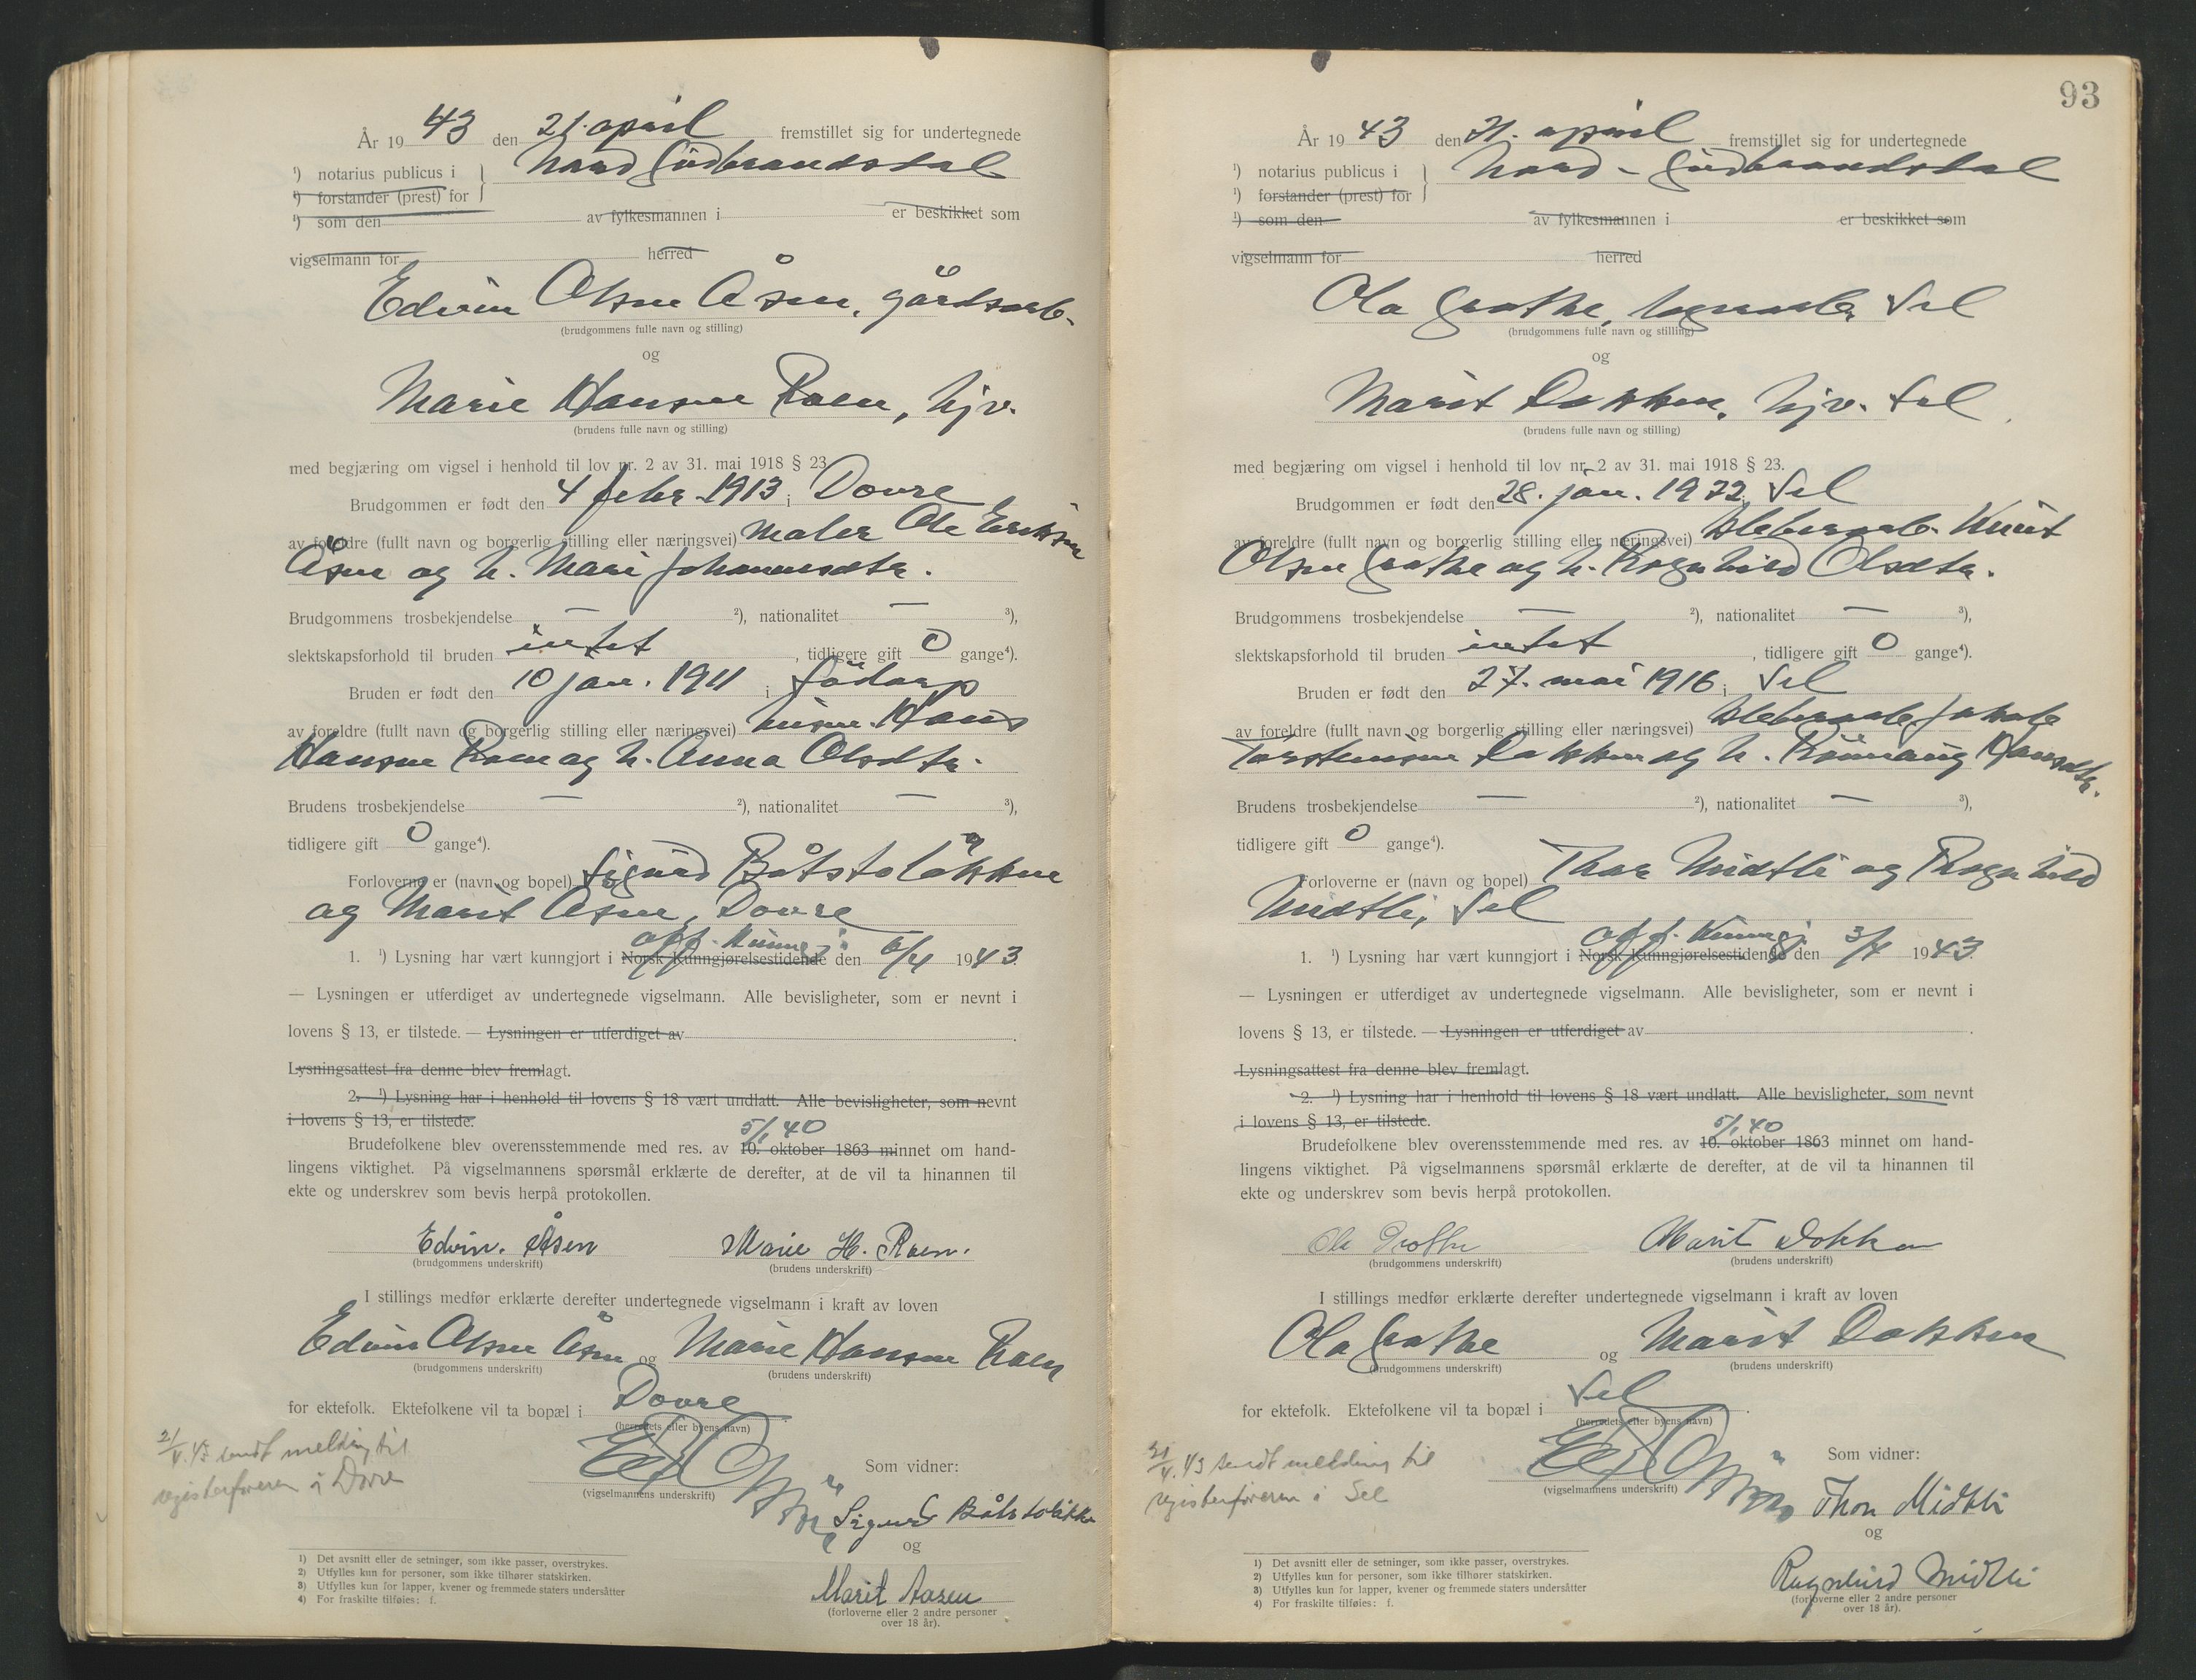 År 19 43 den 21. april fremstillet sig for undertegnede
¹) notarius publicus i } Nord Gudbrandsdal
¹) forstander (prest) for
¹) som den av fylkesmannen i er beskikket som
vigselmann for herred
Edvin Olsen Åsen, gårdsarb.
(brudgommens fulle navn og stilling)
og
Marie Hansen Roen, hjv.
(brudens fulle navn og stilling)
med begjæring om vigsel i henhold til lov nr. 2 av 31. mai 1918 § 23.
Brudgommen er født den 4 febr. 1913 i Dovre
av foreldre (fullt navn og borgerlig stilling eller næringsvei) maler Ole Eriksen
Åsen og h. Mari Johannesdtr.
Brudgommens trosbekjendelse — ²), nationalitet — ³),
slektskapsforhold til bruden intet , tidligere gift 0 gange⁴).
Bruden er født den 10 jan. 1911 i Sødorp
av foreldre (fullt navn og borgerlig stilling eller næringsvei) Hans
Hansen Roen og h. Anna Olsdtr.
Brudens trosbekjendelse — ²), nationalitet — ³),
tidligere gift 0 gange⁴).
Forloverne er (navn og bopel) Sigurd Båtstoløkken
og Marit Åsen, Dovre
off. kunngj.
1. ¹) Lysning har vært kunngjort i Norsk Kunngjørelsestidende den 6/4 1943.
— Lysningen er utferdiget av undertegnede vigselmann. Alle bevisligheter, som er nevnt i
lovens § 13, er tilstede. — Lysningen er utferdiget av .
Lysningsattest fra denne blev fremlagt.
2. ¹) Lysning har i henhold til lovens § 18 vært undlatt. Alle bevisligheter, som nevnt
i lovens § 13, er tilstede.
5/1 40
Brudefolkene blev overensstemmende med res. av 10. oktober 1863 minnet om hand-
lingens viktighet. På vigselmannens spørsmål erklærte de derefter, at de vil ta hinannen til
ekte og underskrev som bevis herpå protokollen.
Edvin. Åsen Marie H. Roen.
(brudgommens underskrift) (brudens underskrift)
I stillings medfør erklærte derefter undertegnede vigselmann i kraft av loven
Edvin Olsen Åsen og Marie Hansen Roen
(brudgommens underskrift) (brudens underskrift)
for ektefolk. Ektefolkene vil ta bopæl i Dovre
(herredets eller byens navn)
21/4. 43 sendt melding til
registerføreren i Dovre
Som vidner:
(vigselmannens underskrift)
Sigurd Båtstoløkke
og
Marit Aasen
(forloverne eller 2 andre personer
over 18 år).
1) Det avsnitt eller de setninger, som ikke passer, overstrykes.
2) Utfylles kun for personer, som ikke tilhører statskirken.
3) Utfylles kun for lapper, kvener og fremmede staters undersåtter
4) For fraskilte tilføies: f.
93
År 19 43 den 21. april fremstillet sig for undertegnede
¹) notarius publicus i } Nord-Gudbrandsdal
¹) forstander (prest) for
¹) som den av fylkesmannen i er beskikket som
vigselmann for herred
Ola Grothe, Sel
(brudgommens fulle navn og stilling)
og
Marit Dokken, hjv. Sel
(brudens fulle navn og stilling)
med begjæring om vigsel i henhold til lov nr. 2 av 31. mai 1918 § 23.
Brudgommen er født den 28. jan. 1922 i Sel
av foreldre (fullt navn og borgerlig stilling eller næringsvei) kleberarb. Knut
Olsen Grothe og h. Ragnhild Olsdtr.
Brudgommens trosbekjendelse — ²), nationalitet — ³),
slektskapsforhold til bruden intet , tidligere gift 0 gange⁴).
Bruden er født den 27. mai 1916 i Sel
av foreldre (fullt navn og borgerlig stilling eller næringsvei) kleberarb. Jakob
Torstensen Dokken og h. Rønnaug Hansdtr.
Brudens trosbekjendelse — ²), nationalitet — ³),
tidligere gift 0 gange⁴).
Forloverne er (navn og bopel) Thor Midtli og Ragnhild
Midtli, Sel
off. kunngj.
1. ¹) Lysning har vært kunngjort i Norsk Kunngjørelsestidende den 3/4 1943
— Lysningen er utferdiget av undertegnede vigselmann. Alle bevisligheter, som er nevnt i
lovens § 13, er tilstede. — Lysningen er utferdiget av .
Lysningsattest fra denne blev fremlagt.
2. ¹) Lysning har i henhold til lovens § 18 vært undlatt. Alle bevisligheter, som nevnt
i lovens § 13, er tilstede.
5/1 40
Brudefolkene blev overensstemmende med res. av 10. oktober 1863 minnet om hand-
lingens viktighet. På vigselmannens spørsmål erklærte de derefter, at de vil ta hinannen til
ekte og underskrev som bevis herpå protokollen.
Ola Grothe Marit Dokken
(brudgommens underskrift) (brudens underskrift)
I stillings medfør erklærte derefter undertegnede vigselmann i kraft av loven
Ola Grothe og Marit Dokken
(brudgommens underskrift) (brudens underskrift)
for ektefolk. Ektefolkene vil ta bopæl i Sel .
(herredets eller byens navn)
21/4. 43 sendt melding til
registerføreren i Sel
Som vidner:
(vigselmannens underskrift)
Thor Midtli
og
Ragnhild Midtli
(forloverne eller 2 andre personer
over 18 år).
1) Det avsnitt eller de setninger, som ikke passer, overstrykes.
2) Utfylles kun for personer, som ikke tilhører statskirken.
3) Utfylles kun for lapper, kvener og fremmede staters undersåtter
4) For fraskilte tilføies: f.